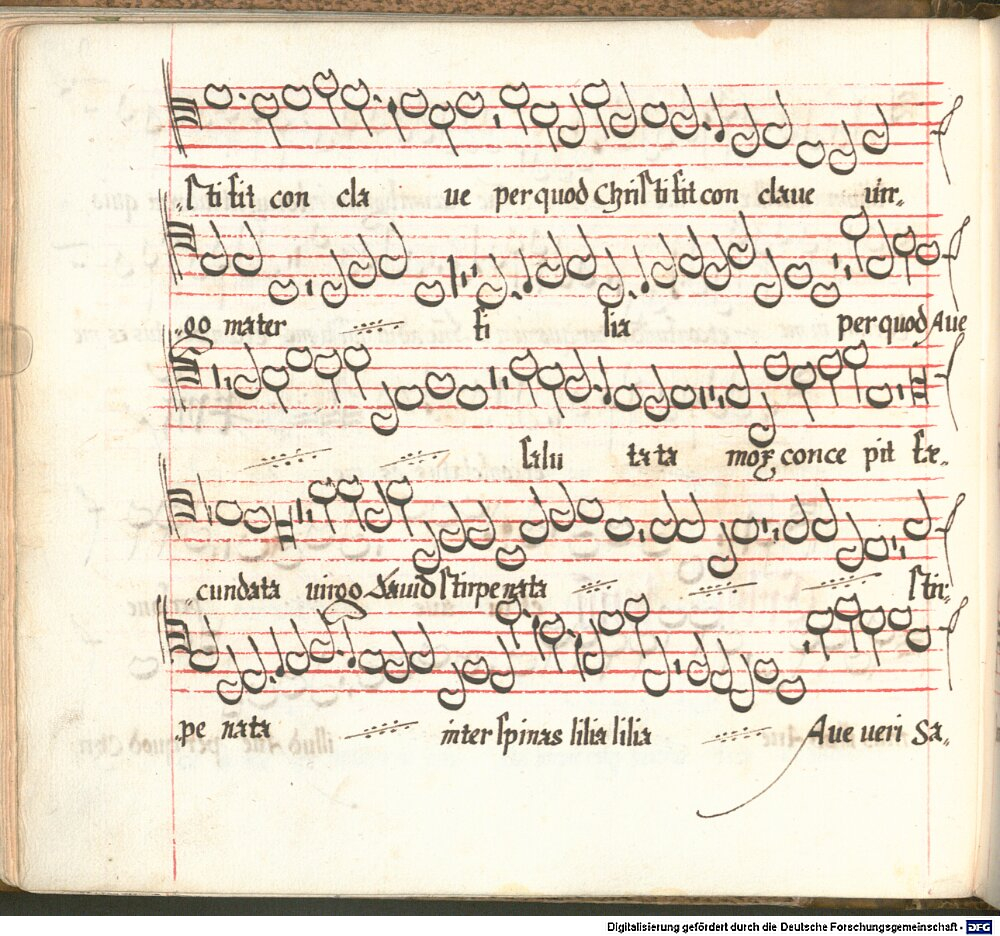 sti fit con cla ue per quod Christi fit con claue uir„
„go mater fi lia per quod Aue
salu tata mox conce pit fe„
cundata uirgo Dauid stirpe nata stir„
„pe nata inter spinas lilia lilia Aue ueri Sa„
Digitalisierung gefördert durch die Deutsche Forschungsgemeinschaft - DFG